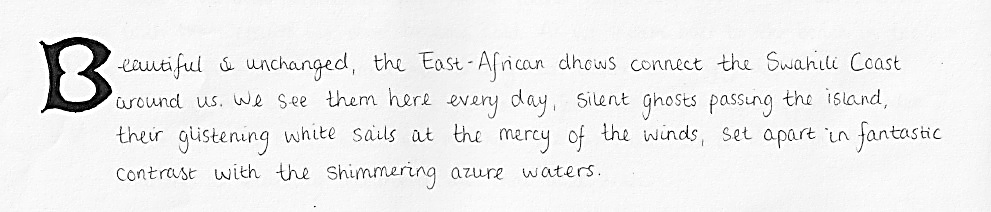 Beautiful & unchanged, the East-African dhows connect the Swahili Coast
around us. We see them here every day, silent ghosts passing the island,
their glistening white sails at the mercy of the winds, set apart in fantastic
contrast with the shimmering azure waters.